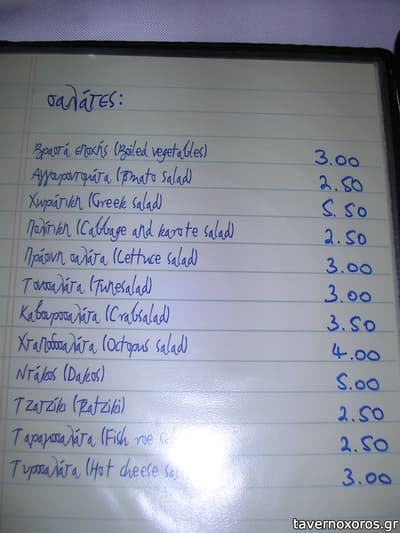 σαλάτες:
Βραστά εποχής (Boiled vegetables) 3.00
Αγγουροντομάτα (Tomato salad) 2.50
Χωριάτικη (Greek salad) 5.50
Πολίτικη (Cabbage and karote salad) 2.50
Πράσινη σαλάτα (Lettuce salad) 3.00
Τονοσαλάτα (Tunesalad) 3.00
Καβουροσαλάτα (Crabsalad) 3.50
Χταποδοσαλάτα (Octopus salad) 4.00
Ντάκος (Dakos) 5.00
Τζατζίκι (Tzatziki) 2.50
Ταραμοσαλάτα (Fish roe 2.50
Τυροσαλάτα (Hot cheese 3.00
tavernoxoros.gr